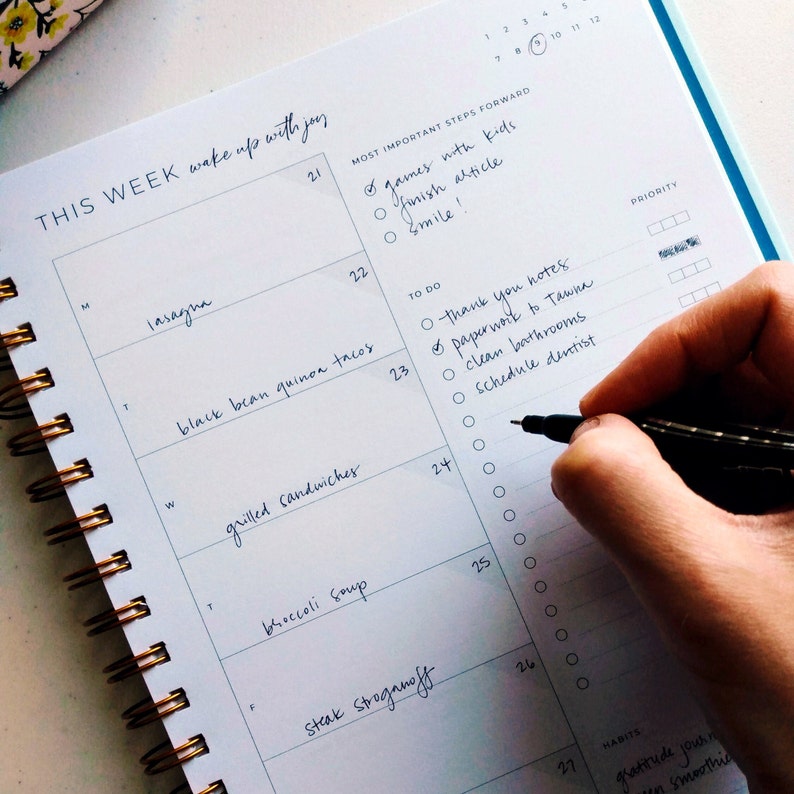 1 2 3 4 5
7 8 9 10 11 12
THIS WEEK wake up with joy
21
M
lasagna
22
T
black bean quinoa tacos
23
W
grilled sandwiches
24
T
broccoli soup
25
F
steak stroganoff
26
27
MOST IMPORTANT STEPS FORWARD
games with kids
finish article
smile!
TO DO
PRIORITY
thank you notes
paperwork to Tawna
clean bathrooms
schedule dentist
HABITS
gratitude
smoothie